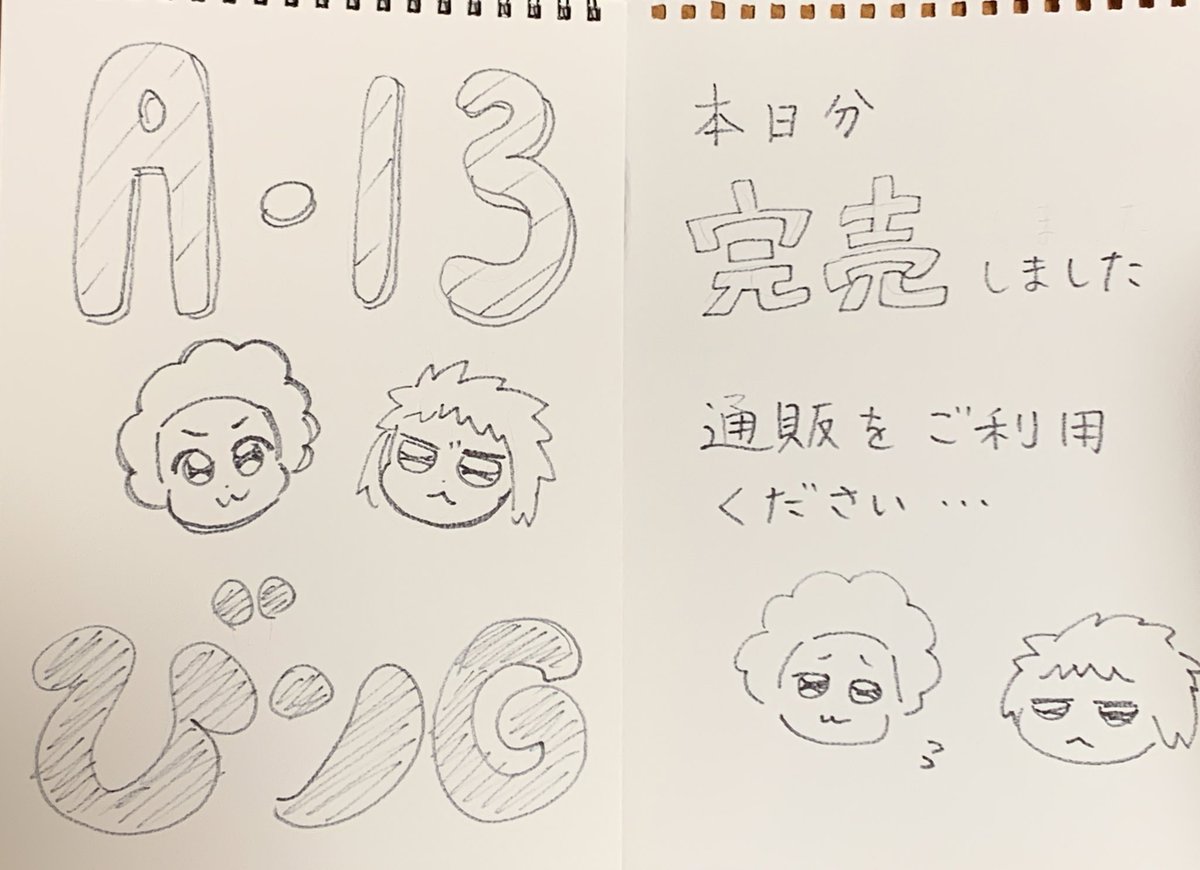 A-13
びンG
本日分
完売しました
通販をご利用
ください…